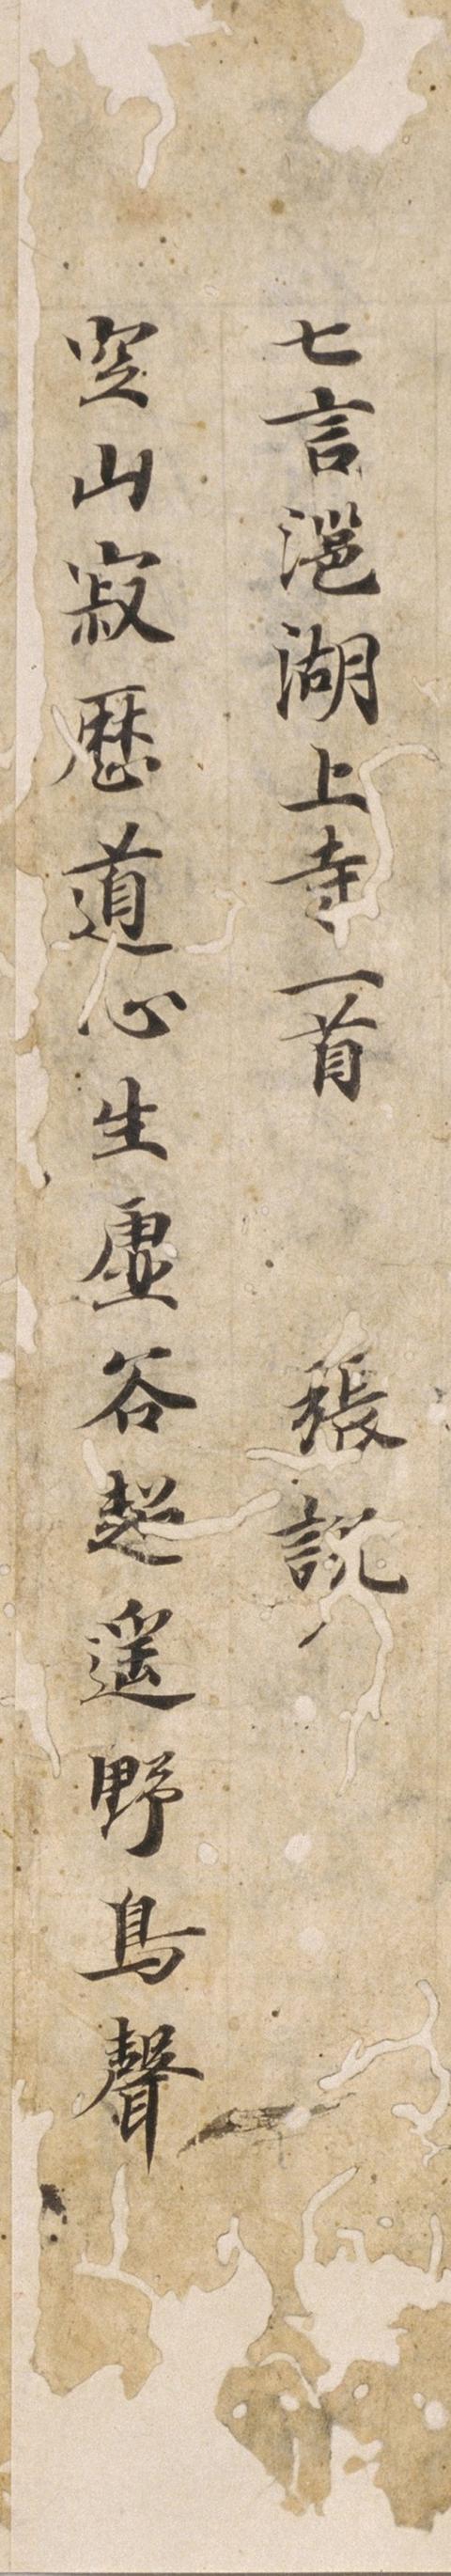 七言滬湖上寺一首 張説
空山寂歷道心生虛谷超遥野鳥聲